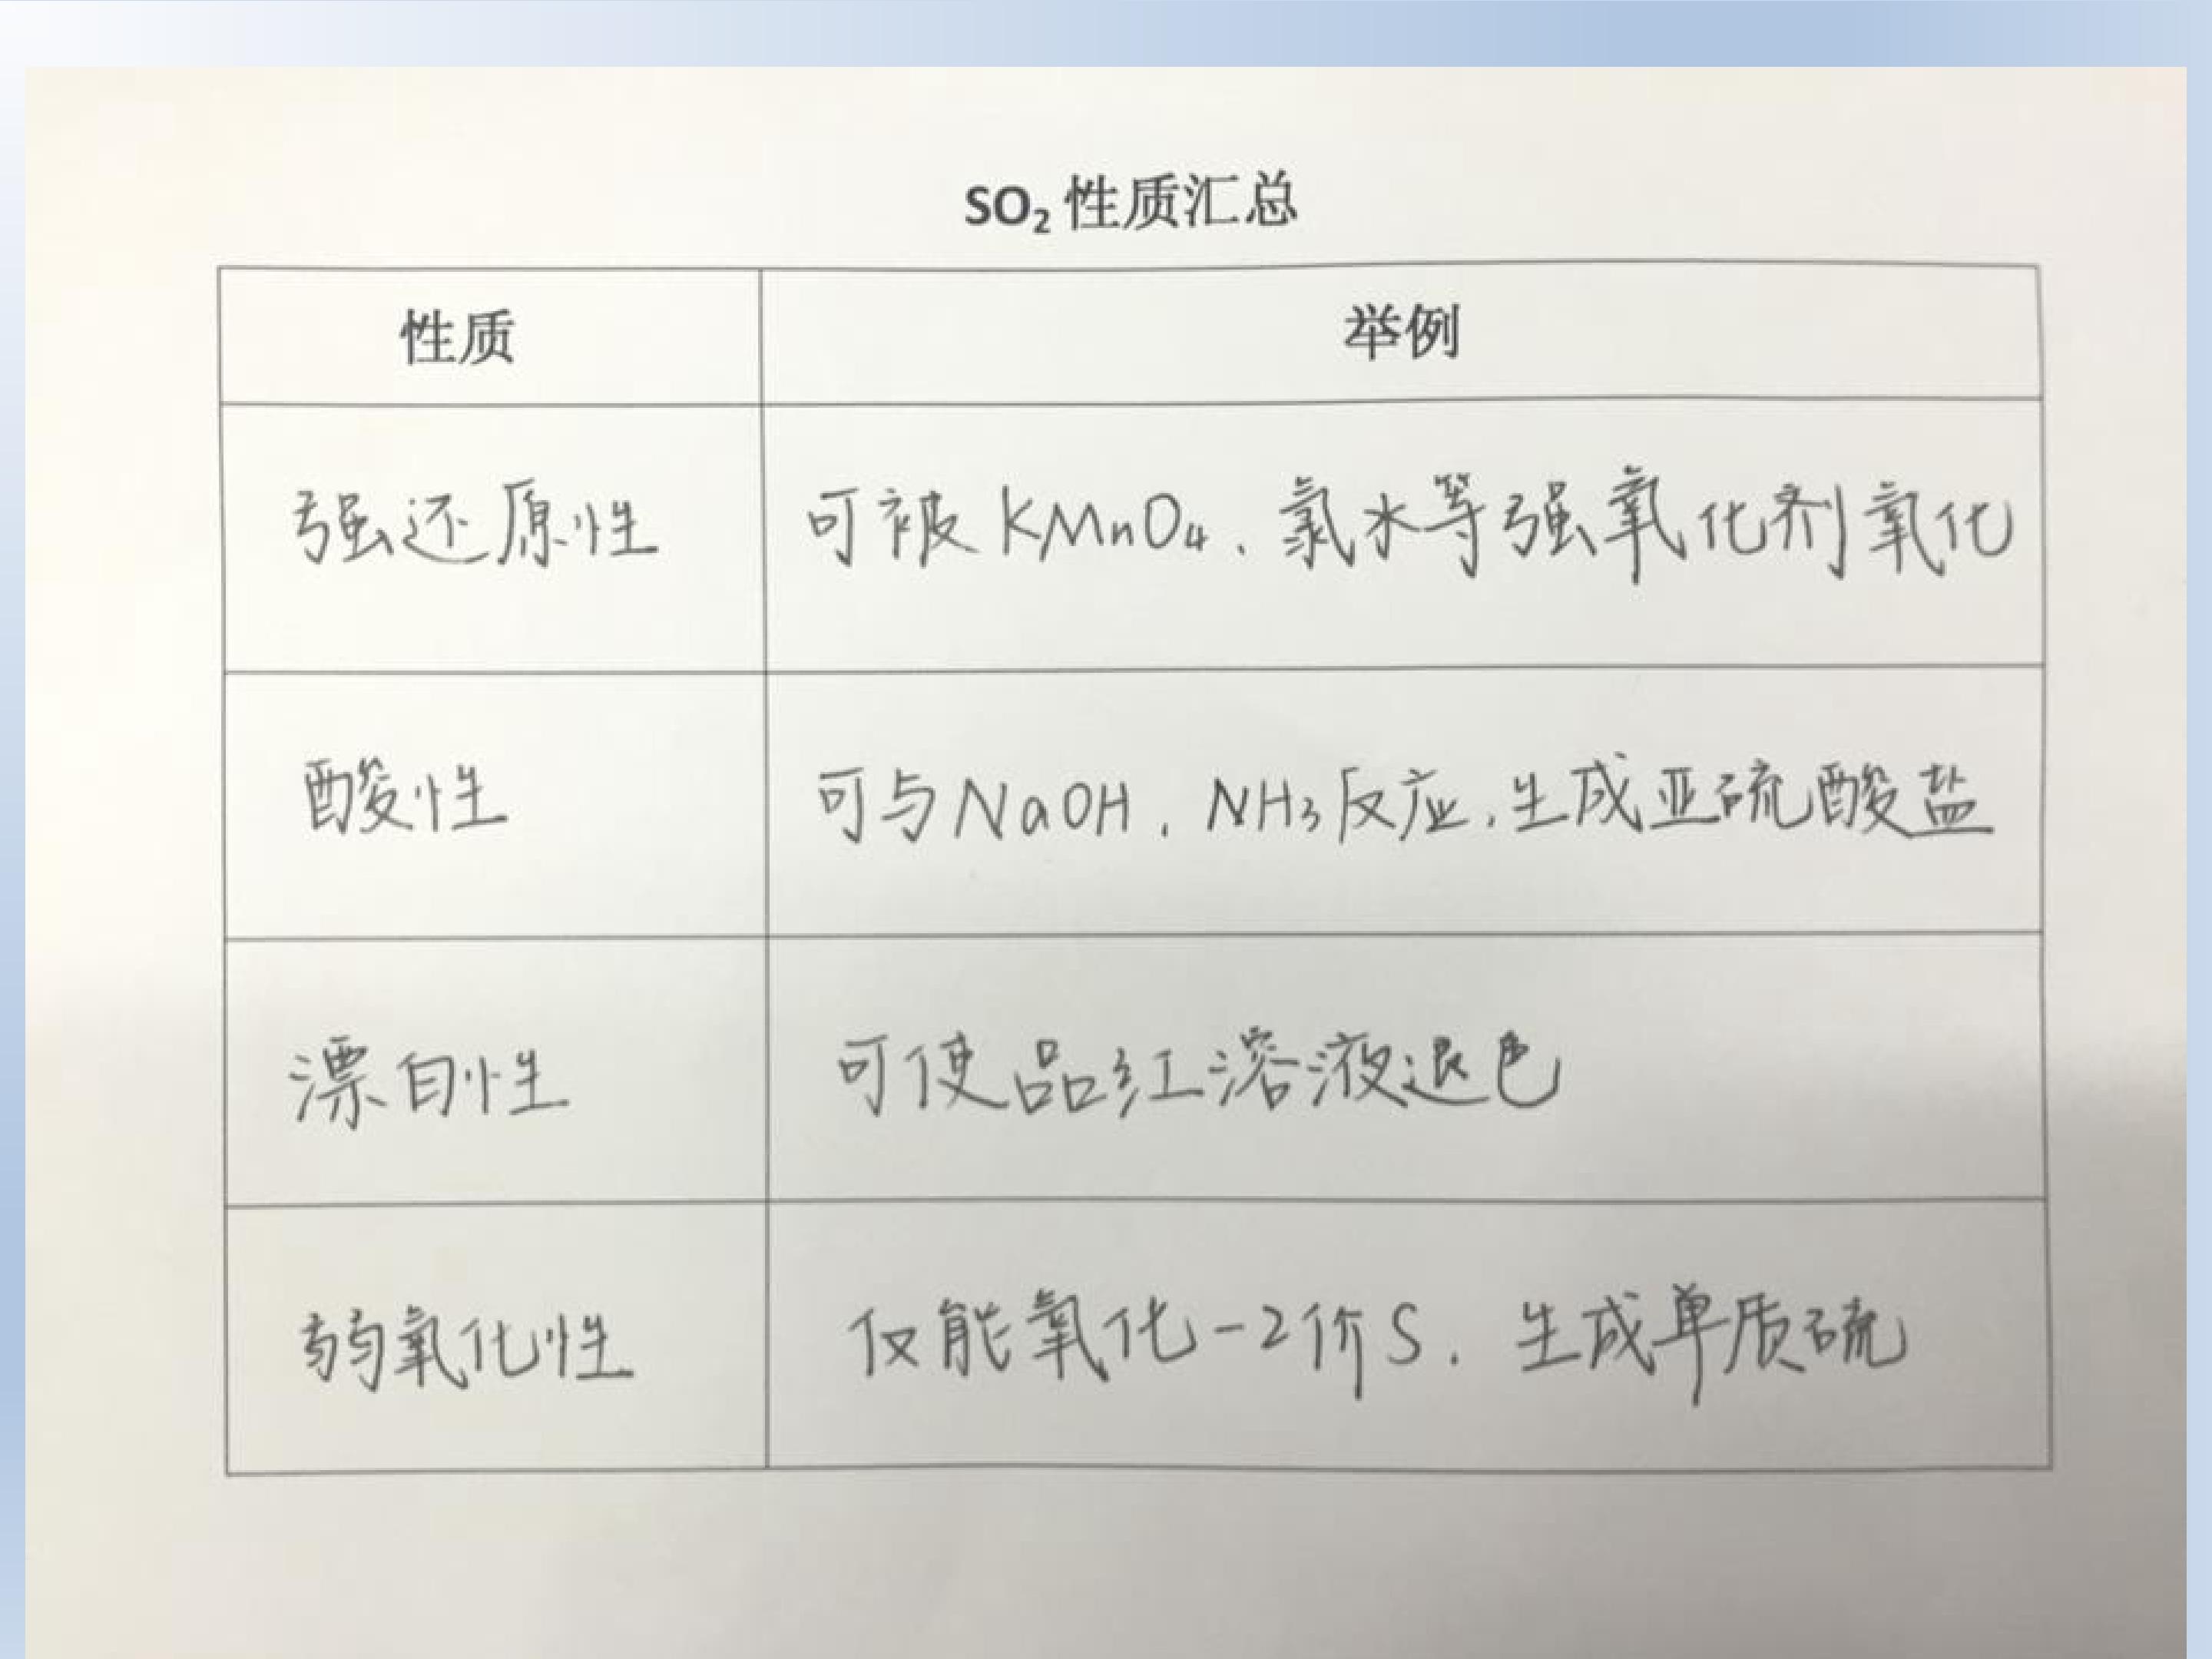 SO₂ 性质汇总
性质 举例
强还原性 可被KMnO₄、氯水等强氧化剂氧化
酸性 可与NaOH、NH₃反应,生成亚硫酸盐
漂白性 可使品红溶液退色
弱氧化性 仅能氧化-2价S.生成单质硫